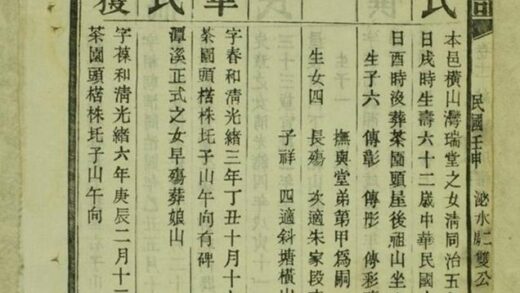 民國壬申 泌水 二雙公
氏
本邑橫山灣瑞堂之女清同治五
日戌時生壽六十二歲中華民國
日酉時沒葬茶園頭屋後祖山坐
生子六 傳彰 傳彤 傳彩
撫與堂弟第甲為嗣
生女四 長殤 次適朱家段
子祥 四適斜塘橫山
氏
字春和清光緒三年丁丑十月十
茶園頭楉株坵子山午向有碑
潭溪正式之女早殤葬娘山
獲
字葆和清光緒六年庚辰二月十二
茶園頭楉株坵子山午向